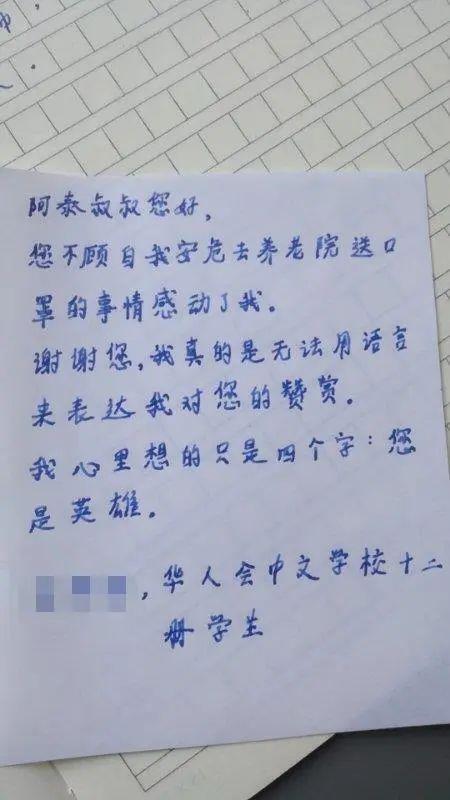 阿泰叔叔您好，
您不顾自我安危去养老院送口
罩的事情感动了我。
谢谢您，我真的是无法用语言
来表达我对您的赞赏。
我心里想的只是四个字：您
是英雄。
，华人会中文学校十二
册学生